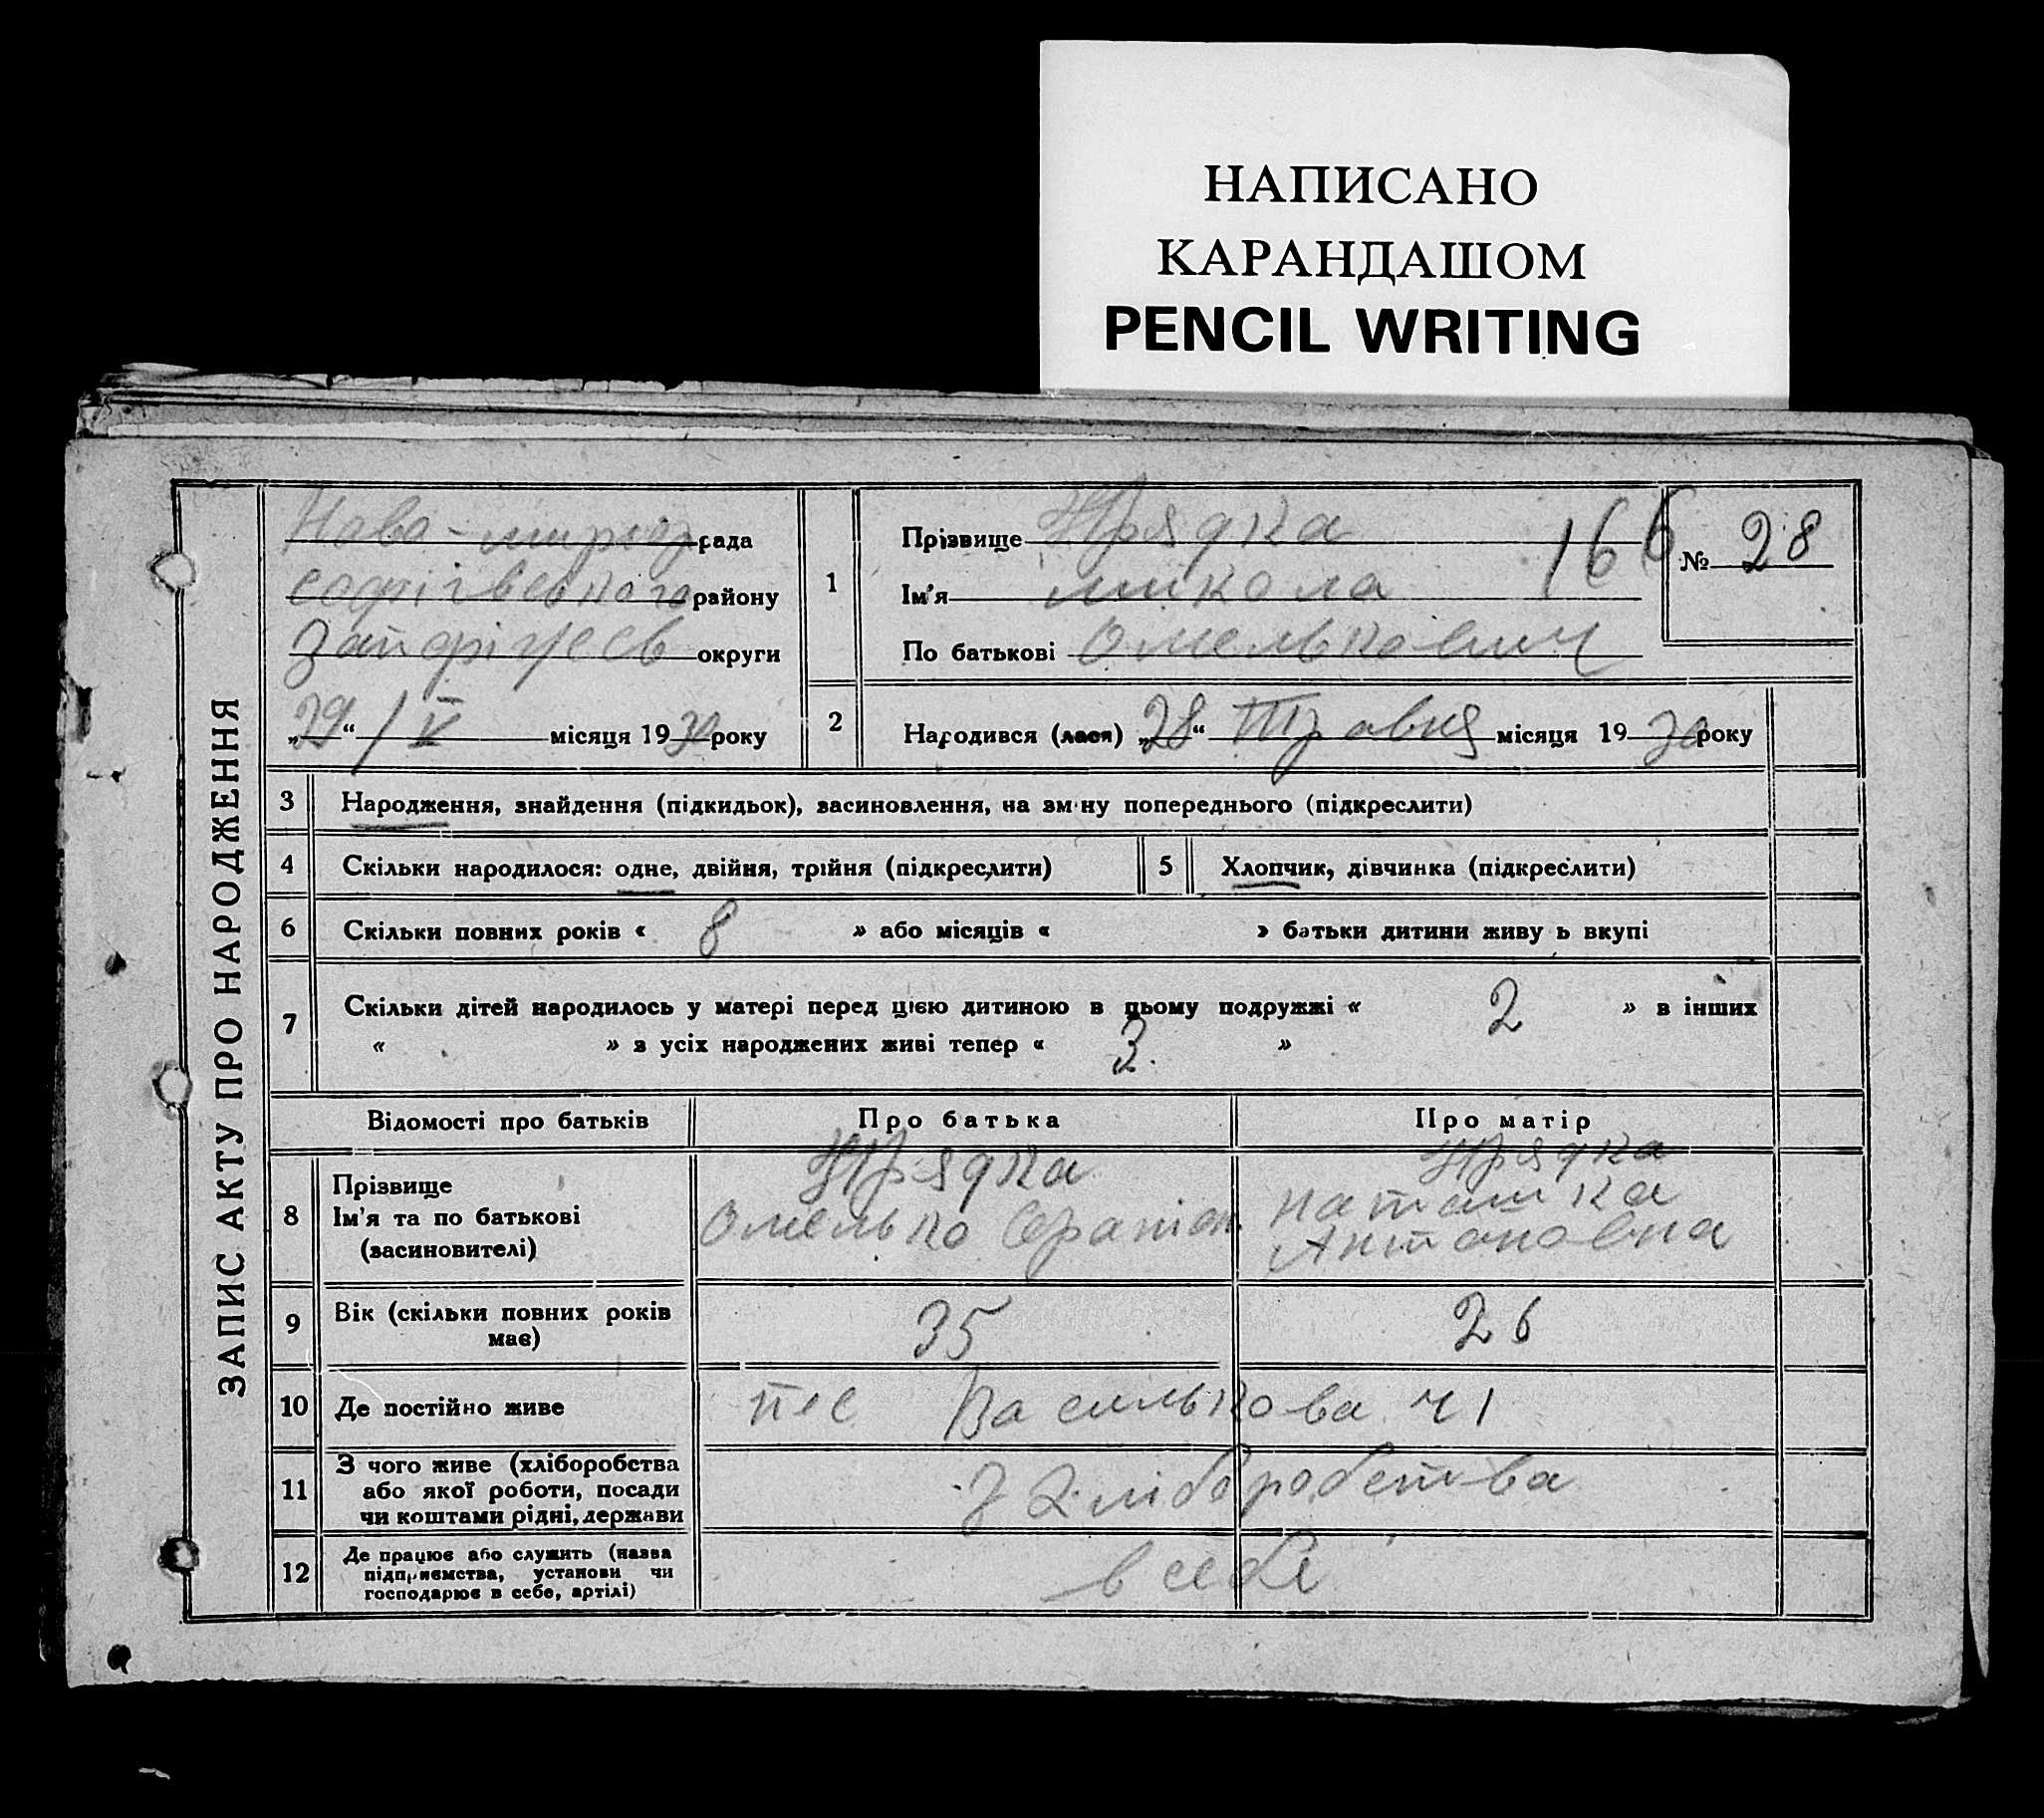 НАПИСАНО
КАРАНДАШОМ
PENCIL WRITING
ЗАПИС АКТУ ПРО НАРОДЖЕННЯ
рада
району
округи
„29“ / V місяця 1930 року
1
Прізвище 166
Ім'я микола
По батькові Омелькович
№ 28
2 Народився (лася) „28“ Травня місяця 1930 року
3 Народження, знайдення (підкидьок), засиновлення, на зміну попереднього (підкреслити)
4 Скільки народилося: одне, двійня, трійня (підкреслити) 5 Хлопчик, дівчинка (підкреслити)
6 Скільки повних років « 8 » або місяців « » батьки дитини живуть вкупі
7 Скільки дітей народилось у матері перед цією дитиною в цьому подружжі « 2 » в інших
« » з усіх народжених живі тепер « 3 »
Відомості про батьків Про батька Про матір
8 Прізвище
Ім'я та по батькові Омелько наташка
(засиновителі) Антоновна
9 Вік (скільки повних років 35 26
має)
10 Де постійно живе Василькова ч 1
11 З чого живе (хліборобства
або якої роботи, посади З хліборобства
чи коштами рідні, держави
12 Де працює або служить (назва
підприємства, установи чи в себе
господарює в себе, артілі)